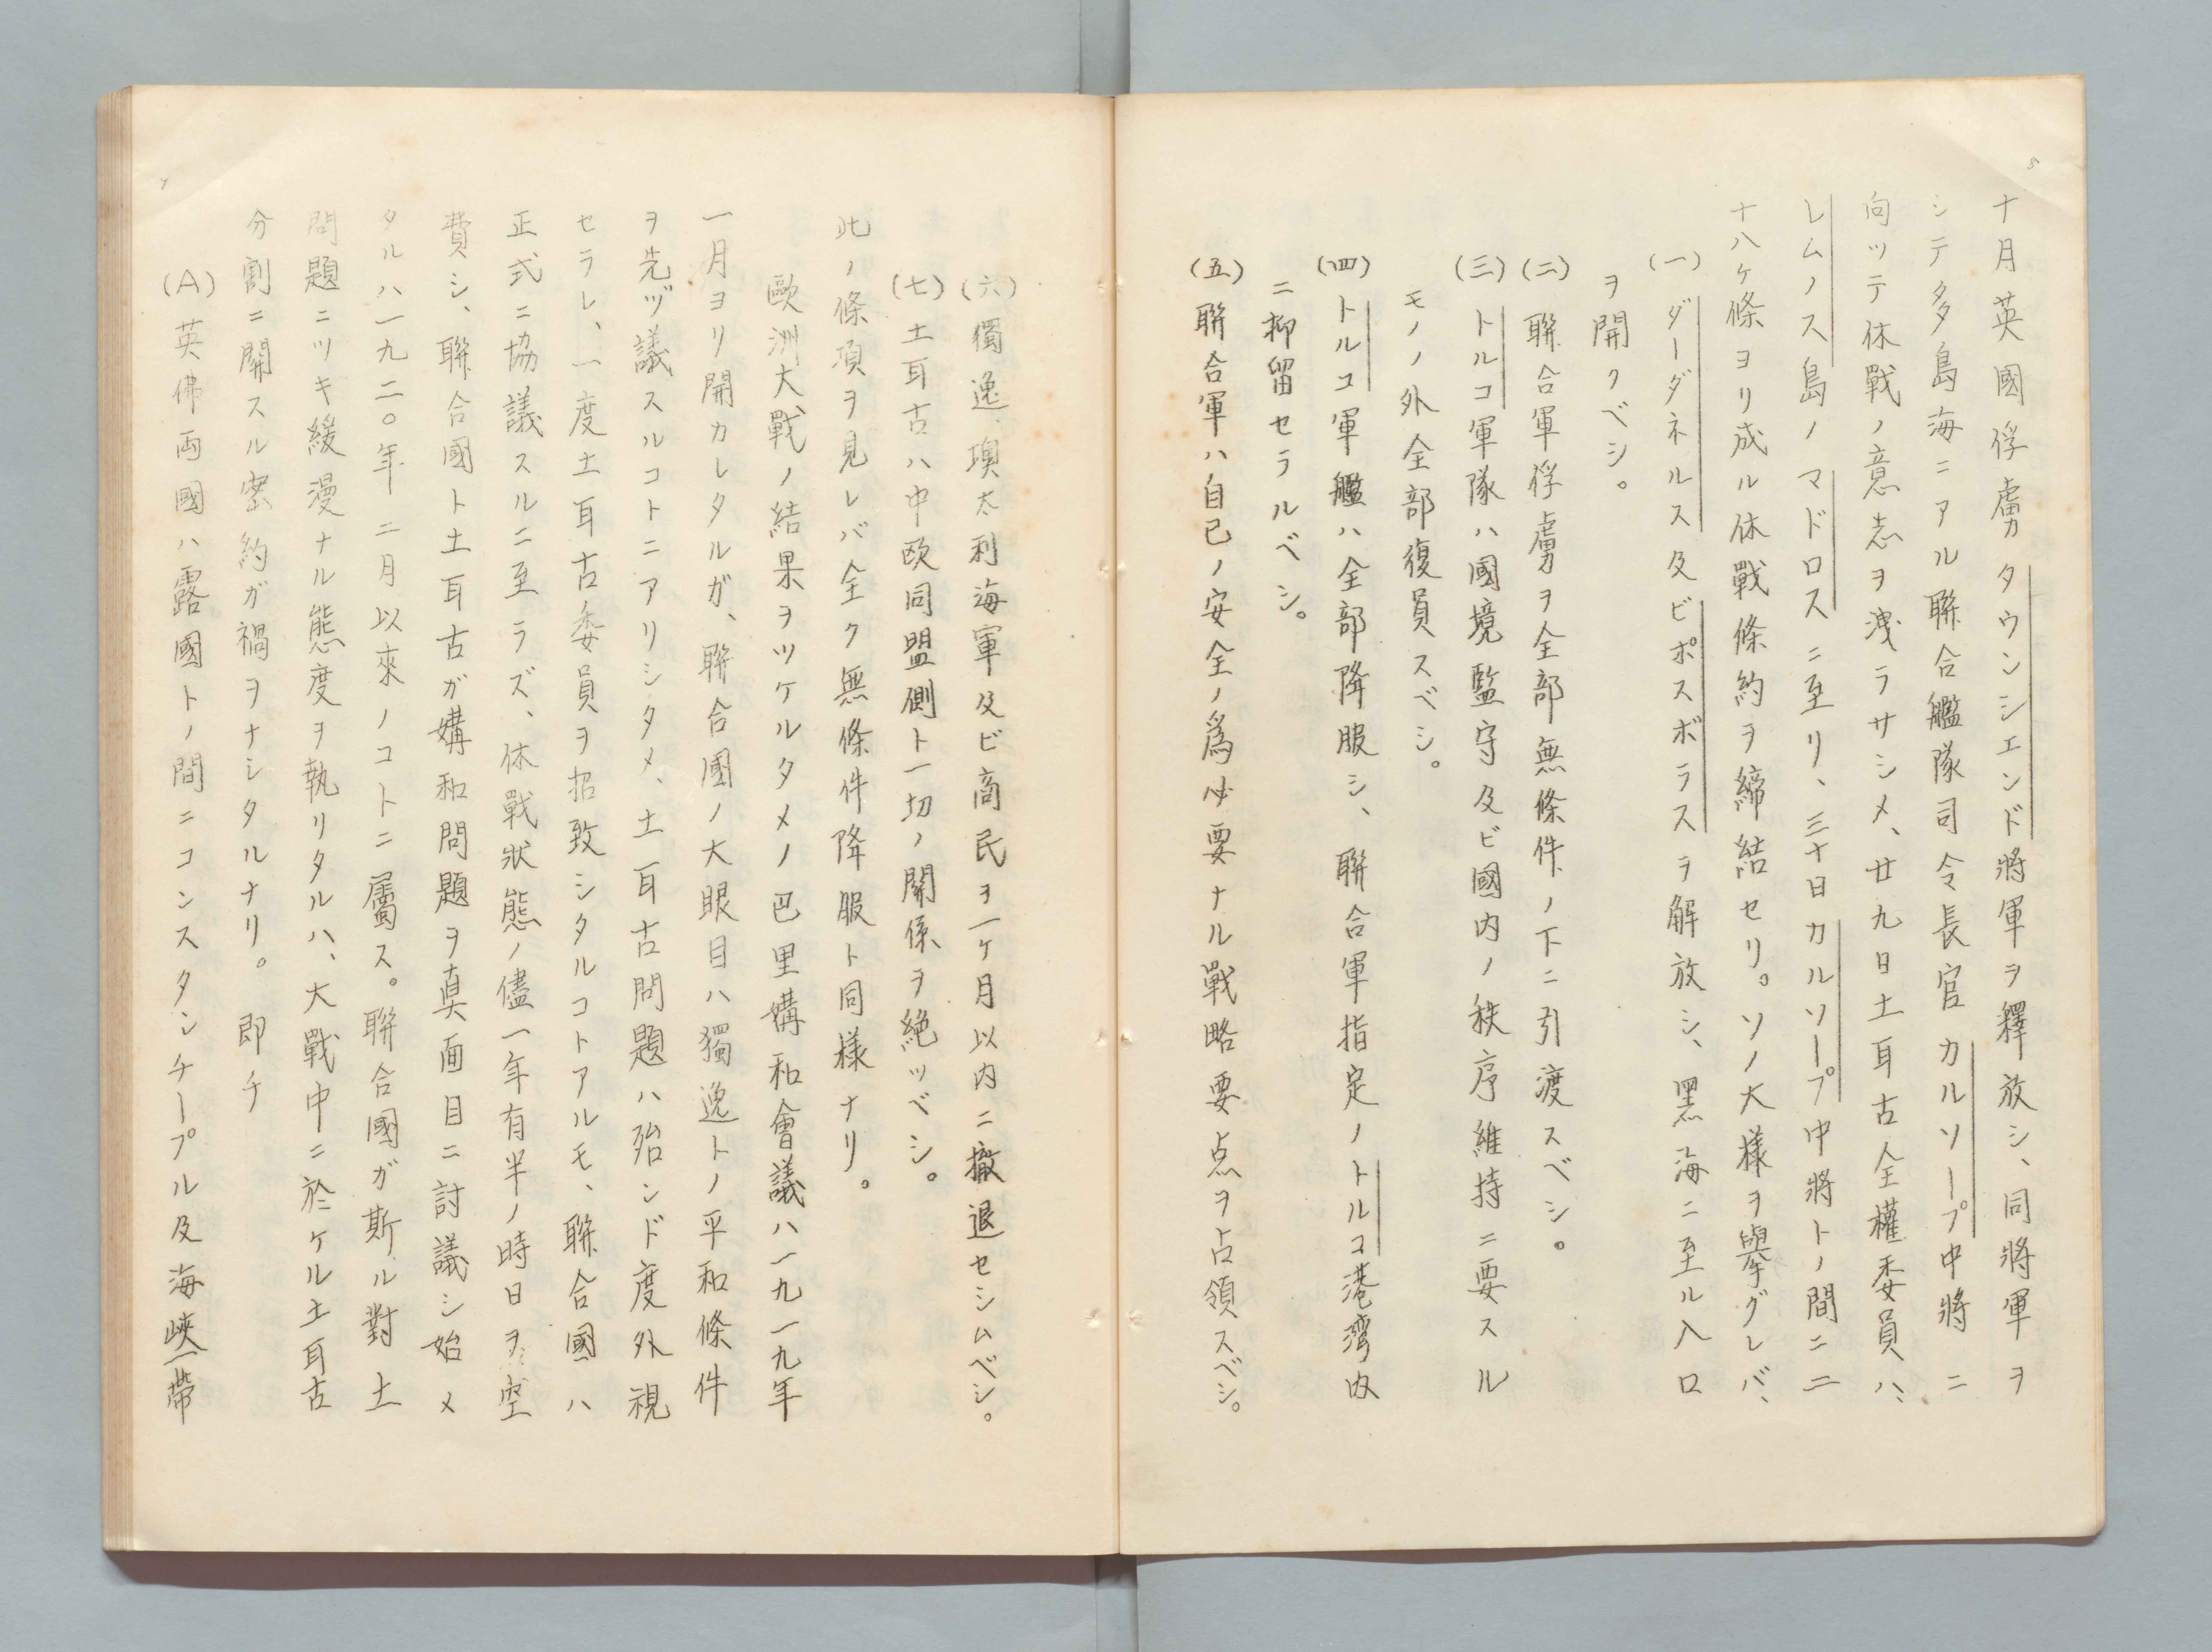 十月英國俘虜タウンシエンド將軍ヲ釋放シ、同將軍ヲ
シテ多島海ニアル聯合艦隊司令長官カルソープ中將ニ
向ツテ休戰ノ意志ヲ洩ラサシメ、廿九日土耳古全權委員ハ、
レムノス島ノマドロスニ至リ、三十日カルソープ中將トノ間ニ二
十八ケ條ヨリ成ル休戰條約ヲ締結セリ。ソノ大樣ヲ擧グレバ、
(一)ダーダネルス及ビポスボラスヲ解放シ、黑海ニ至ル入口
ヲ開クベシ。
(二)聯合軍俘虜ヲ全部無條件ノ下ニ引渡スベシ。
(三)トルコ軍隊ハ國境監守及ビ國内ノ秩序維持ニ要スル
モノノ外全部復員スベシ。
(四)トルコ軍艦ハ全部降服シ、聯合軍指定ノトルコ港湾内
ニ抑留セラルベシ。
(五)聯合軍ハ自己ノ安全ノ爲必要ナル戰略要点ヲ占領スベシ。
(六)獨逸、墺太利海軍及ビ商民ヲ一ケ月以内ニ撤退セシムベシ。
(七)土耳古ハ中欧同盟側ト一切ノ關係ヲ絶ツベシ。
此ノ條項ヲ見レバ全ク無條件降服ト同様ナリ。
歐洲大戰ノ結果ヲツケルタメノ巴里媾和會議ハ一九一九年
一月ヨリ開カレタルガ、聯合國ノ大眼目ハ獨逸トノ平和條件
ヲ先ヅ議スルコトニアリシタメ、土耳古問題ハ殆ンド度外視
セラレ、一度土耳古委員ヲ招致シタルコトアルモ、聯合國ハ
正式ニ協議スルニ至ラズ、休戰狀態ノ儘一年有半ノ時日ヲ空
費シ、聯合國ト土耳古ガ媾和問題ヲ真面目ニ討議シ始メ
タルハ一九二〇年二月以來ノコトニ屬ス。聯合國ガ斯ル對土
問題ニツキ緩漫ナル態度ヲ執リタルハ、大戰中ニ於ケル土耳古
分割ニ關スル密約ガ禍ヲナシタルナリ。即チ
(A)英佛両國ハ露國トノ間ニコンスタンチープル及海峽一帶